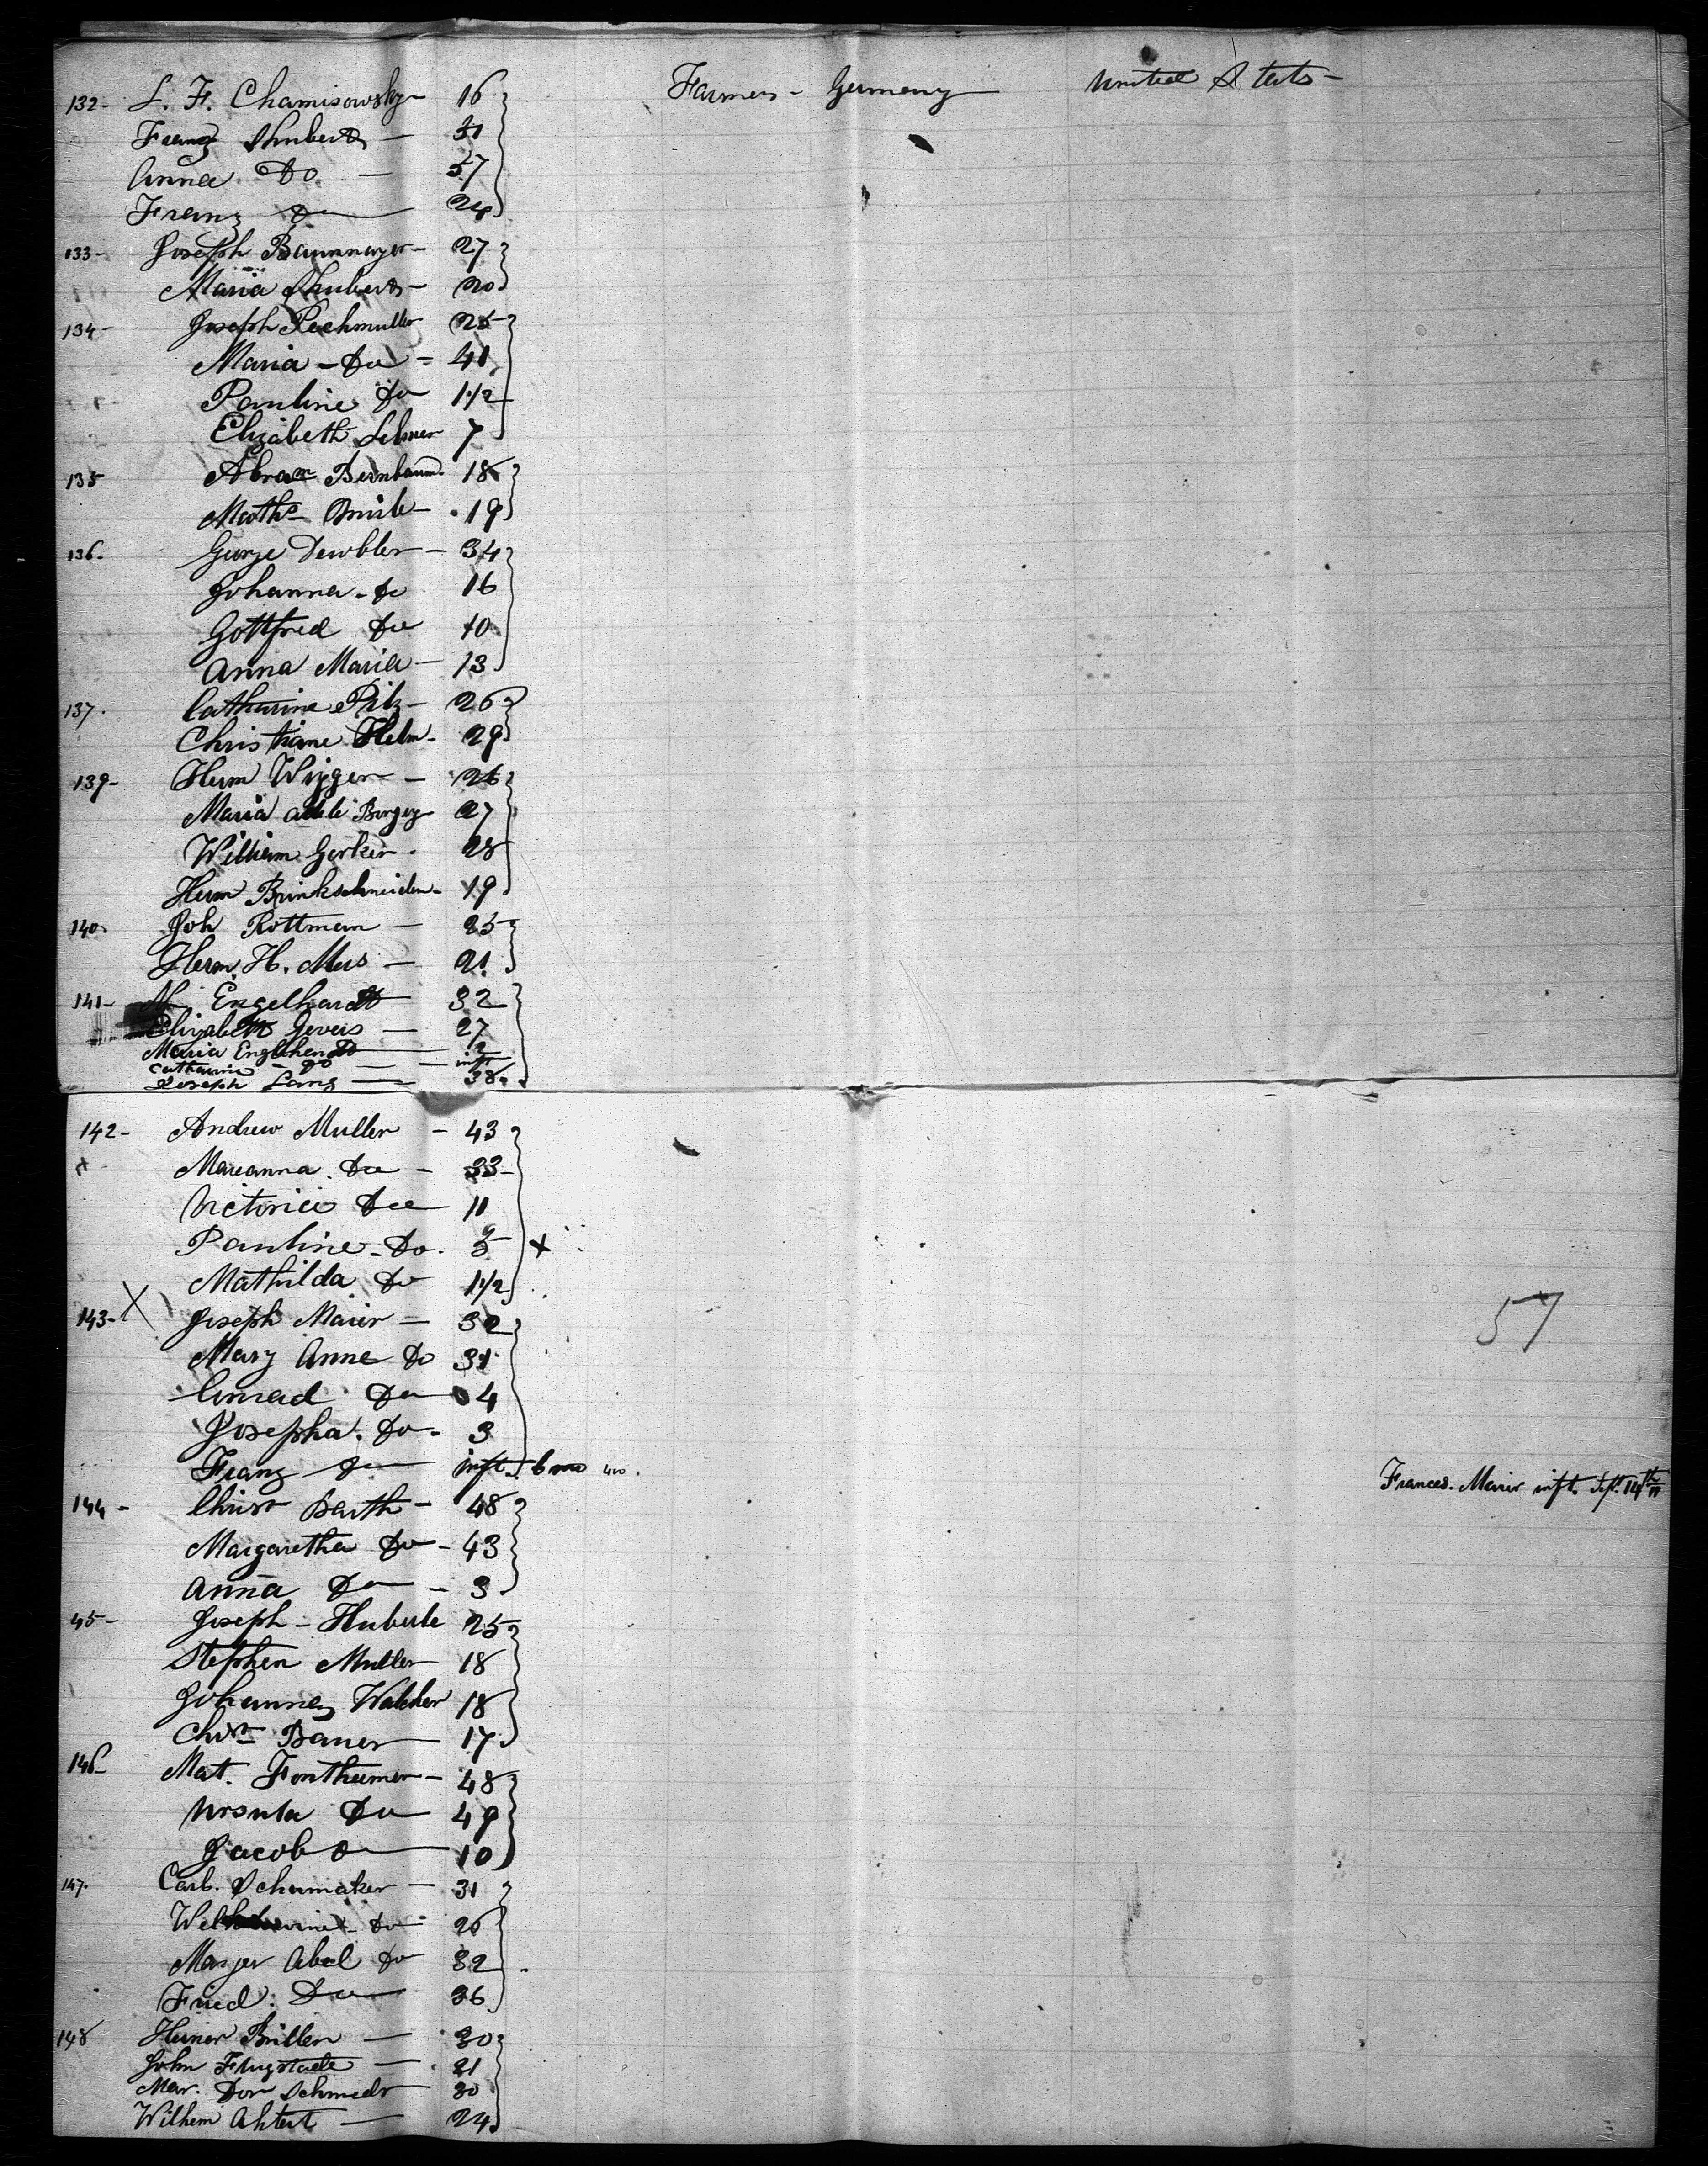 132- L. F. Chamisowsky- 16 Farmers - Germany United States -
Franz Shuberts - 51
Anna Do - 57
Franz Do 24
133- Joseph Baunmayer- 27
Maria Shuberts- 20
134- Joseph Pechmuller 25
Maria - Do - 41
Pauline Do 1 1/2
Elizabeth 7
135 Abram Bernbaum. 18
Maths 19
136- George Dewbler - 34
Johanna - Do 16
Gottfred Do 10
Anna Maria - 13
137. Catharine Pilz- 26
Christiane Helm- 29
139- Herm Wigger - 26
Maria 27
William Gerken. 28
Herm Brinkschneider- 19
140- Joh Rottman - 25
Herm. H. Mus - 21
141- M. Engelhardt 32
Elizabeth Gevers - 27
Maria Do 2
Catharine - Do - inft
Joseph Lang - 38
142- Andrew Muller - 43
x - Mareanna. Do - 33-
Victoria Do 11
Pauline - Do. x
Mathilda Do 1 1/2
143- X Joseph Maier - 32 57
Mary Anne Do 31
Conrad Do 4
Josepha. Do- 3
Franz Do inft. 6 mo Frances. Maier inft. Sept. 14th
144 - Christ Barth - 48
Margaretha Do - 43
Anna Do - 3
45- Joseph - Huberle 25
Stephen Muller 18
Johannes Walcher 18
Chrn Bauer 17
146- Mat. Fonthumer - 48
Ursula Do 49
Jacob Do 10
147. Carl. Schumaker - 31
Do 26
Abel Do 32
Fried. Do 36
148 Heiner Britter - 30
John Flugstade - 21
Mar. Dor Schmidt 30
Wilhem Ahlert - 24